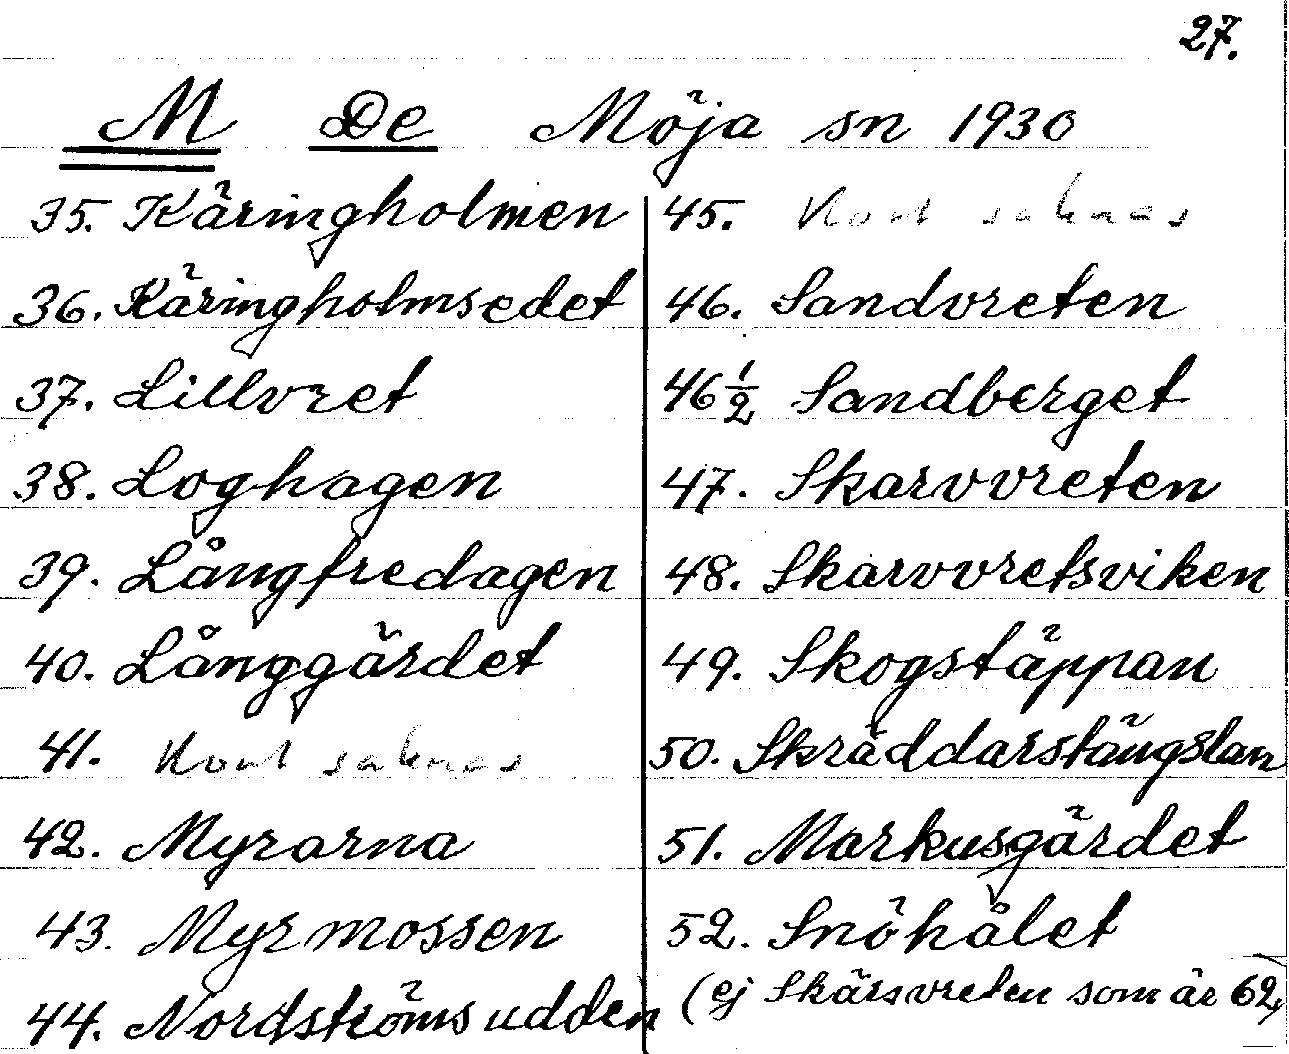 27.
M De Möja sn 1930
35. Käringholmen
36. Käringholmsedet
37. Lillvret
38. Loghagen
39. Långfredagen
40. Långgärdet
41. Kort saknas
42. Myrarna
43. Myrmossen
44. Nordströmsudden
45. Kort saknas
46. Sandvreten
46 1/2 Sandberget
47. Skarvvreten
48. Skarvvretsviken
49. Skogstäppan
50. Skräddarstängslan
51. Markusgärdet
52. Snöhålet
(ej Skärsvreten som är 62)